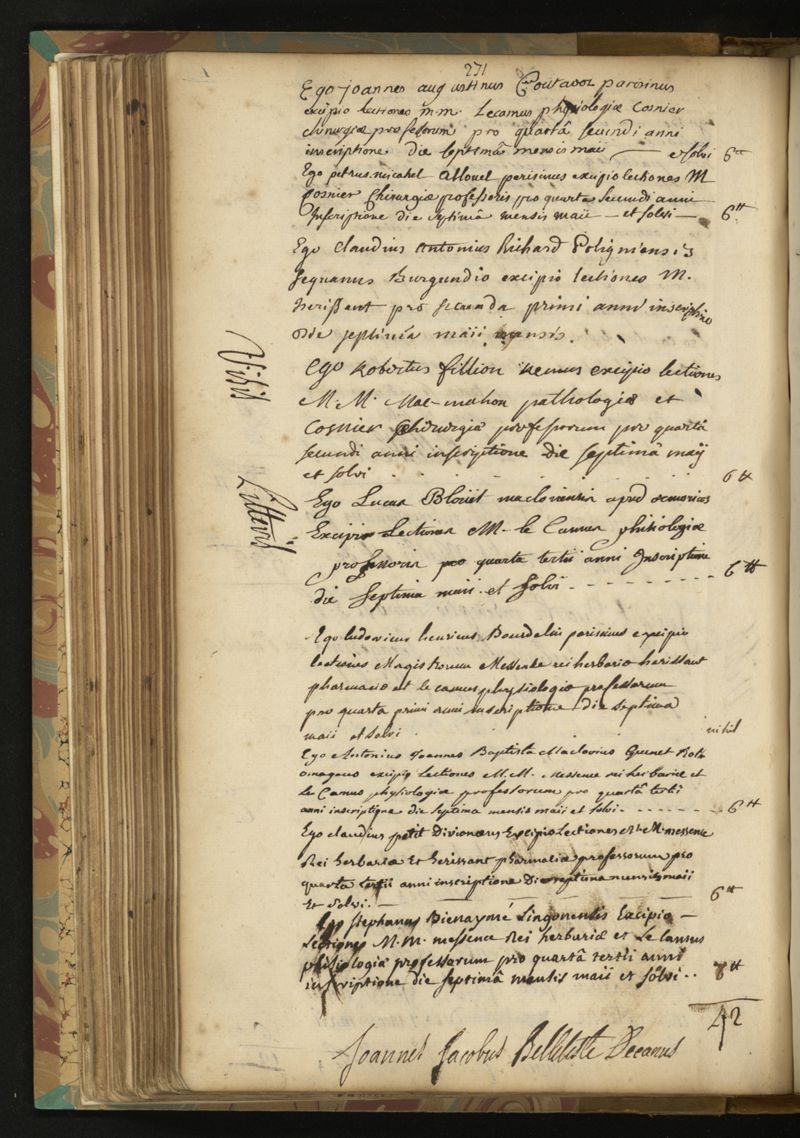 271
Ego joannes augustinus Coutavoz parisinus
excipio lectiones m.m. Lecamus physiologiæ Cosnier
chirurgiæ professorum pro quartâ secundi anni
inscriptione die septimâ mensis maii — et solvi 6tt
Ego petrus michael allouel parisinus excipio lectiones M
Cosnier Chirurgiæ professoris pro quarta secundi anni
Inscriptione die septimâ mensis maii — et solvi — 6tt
Ego Claudius Antonius Richard Poligniensis
sequanus Burgundio excipio lectiones M.
herissent pro secunda primi anni inscriptione
die septimâ maii mensis.
Nihil
Ego Robertus fillion excipio lectiones
M.M. Mac-mahon pathologiæ et
Cosnier Chirurgiæ professorum pro quartâ
secundi anni inscriptione die septimâ maij
et solvi 6tt
Ego Lucas Bloüet macloviensis apud
Excipio Lectiones M. le Camus phisiologiæ
professoris pro quarta tertii anni Inscriptione
die septima maii et solvi - - - - - - - 6tt
Ego ludovicus henricus Bourdelin parisinus excipio
lectiones Magistrorum Messence rei herbariæ herissant
pharmaciæ et le camus physiologiæ professorum
pro quarta primi anni inscriptione die septima
maii et solvi nihil
Ego Antonius Joannes Baptista Maclovius Quenet Roth
omagæus excipio Lectiones M.M. Messence rei herbariæ et
Le Camus physiologiæ professorum pro quartâ tertii
anni inscriptione die septima mensis maii et solvi - - - - - - - 6tt
Ego claudius petit Divionæus Excipio Lectiones M.M. messence
Rei herbariæ Et herissant pharmaciæ professorum pro
quarta tertii anni inscriptione Die septima mensis maii
Et solvi. — 6tt
Ego Stephanus Bienaymé Lingonensis Excipio —
Lectiones M.M. messence Rei herbariæ et Le Camus
phisiologiæ professorum pro quartâ tertii anni
inscriptione die septimâ mensis maii et solvi - - 6tt
42
Joannes Jacobus Belleteste Decanus